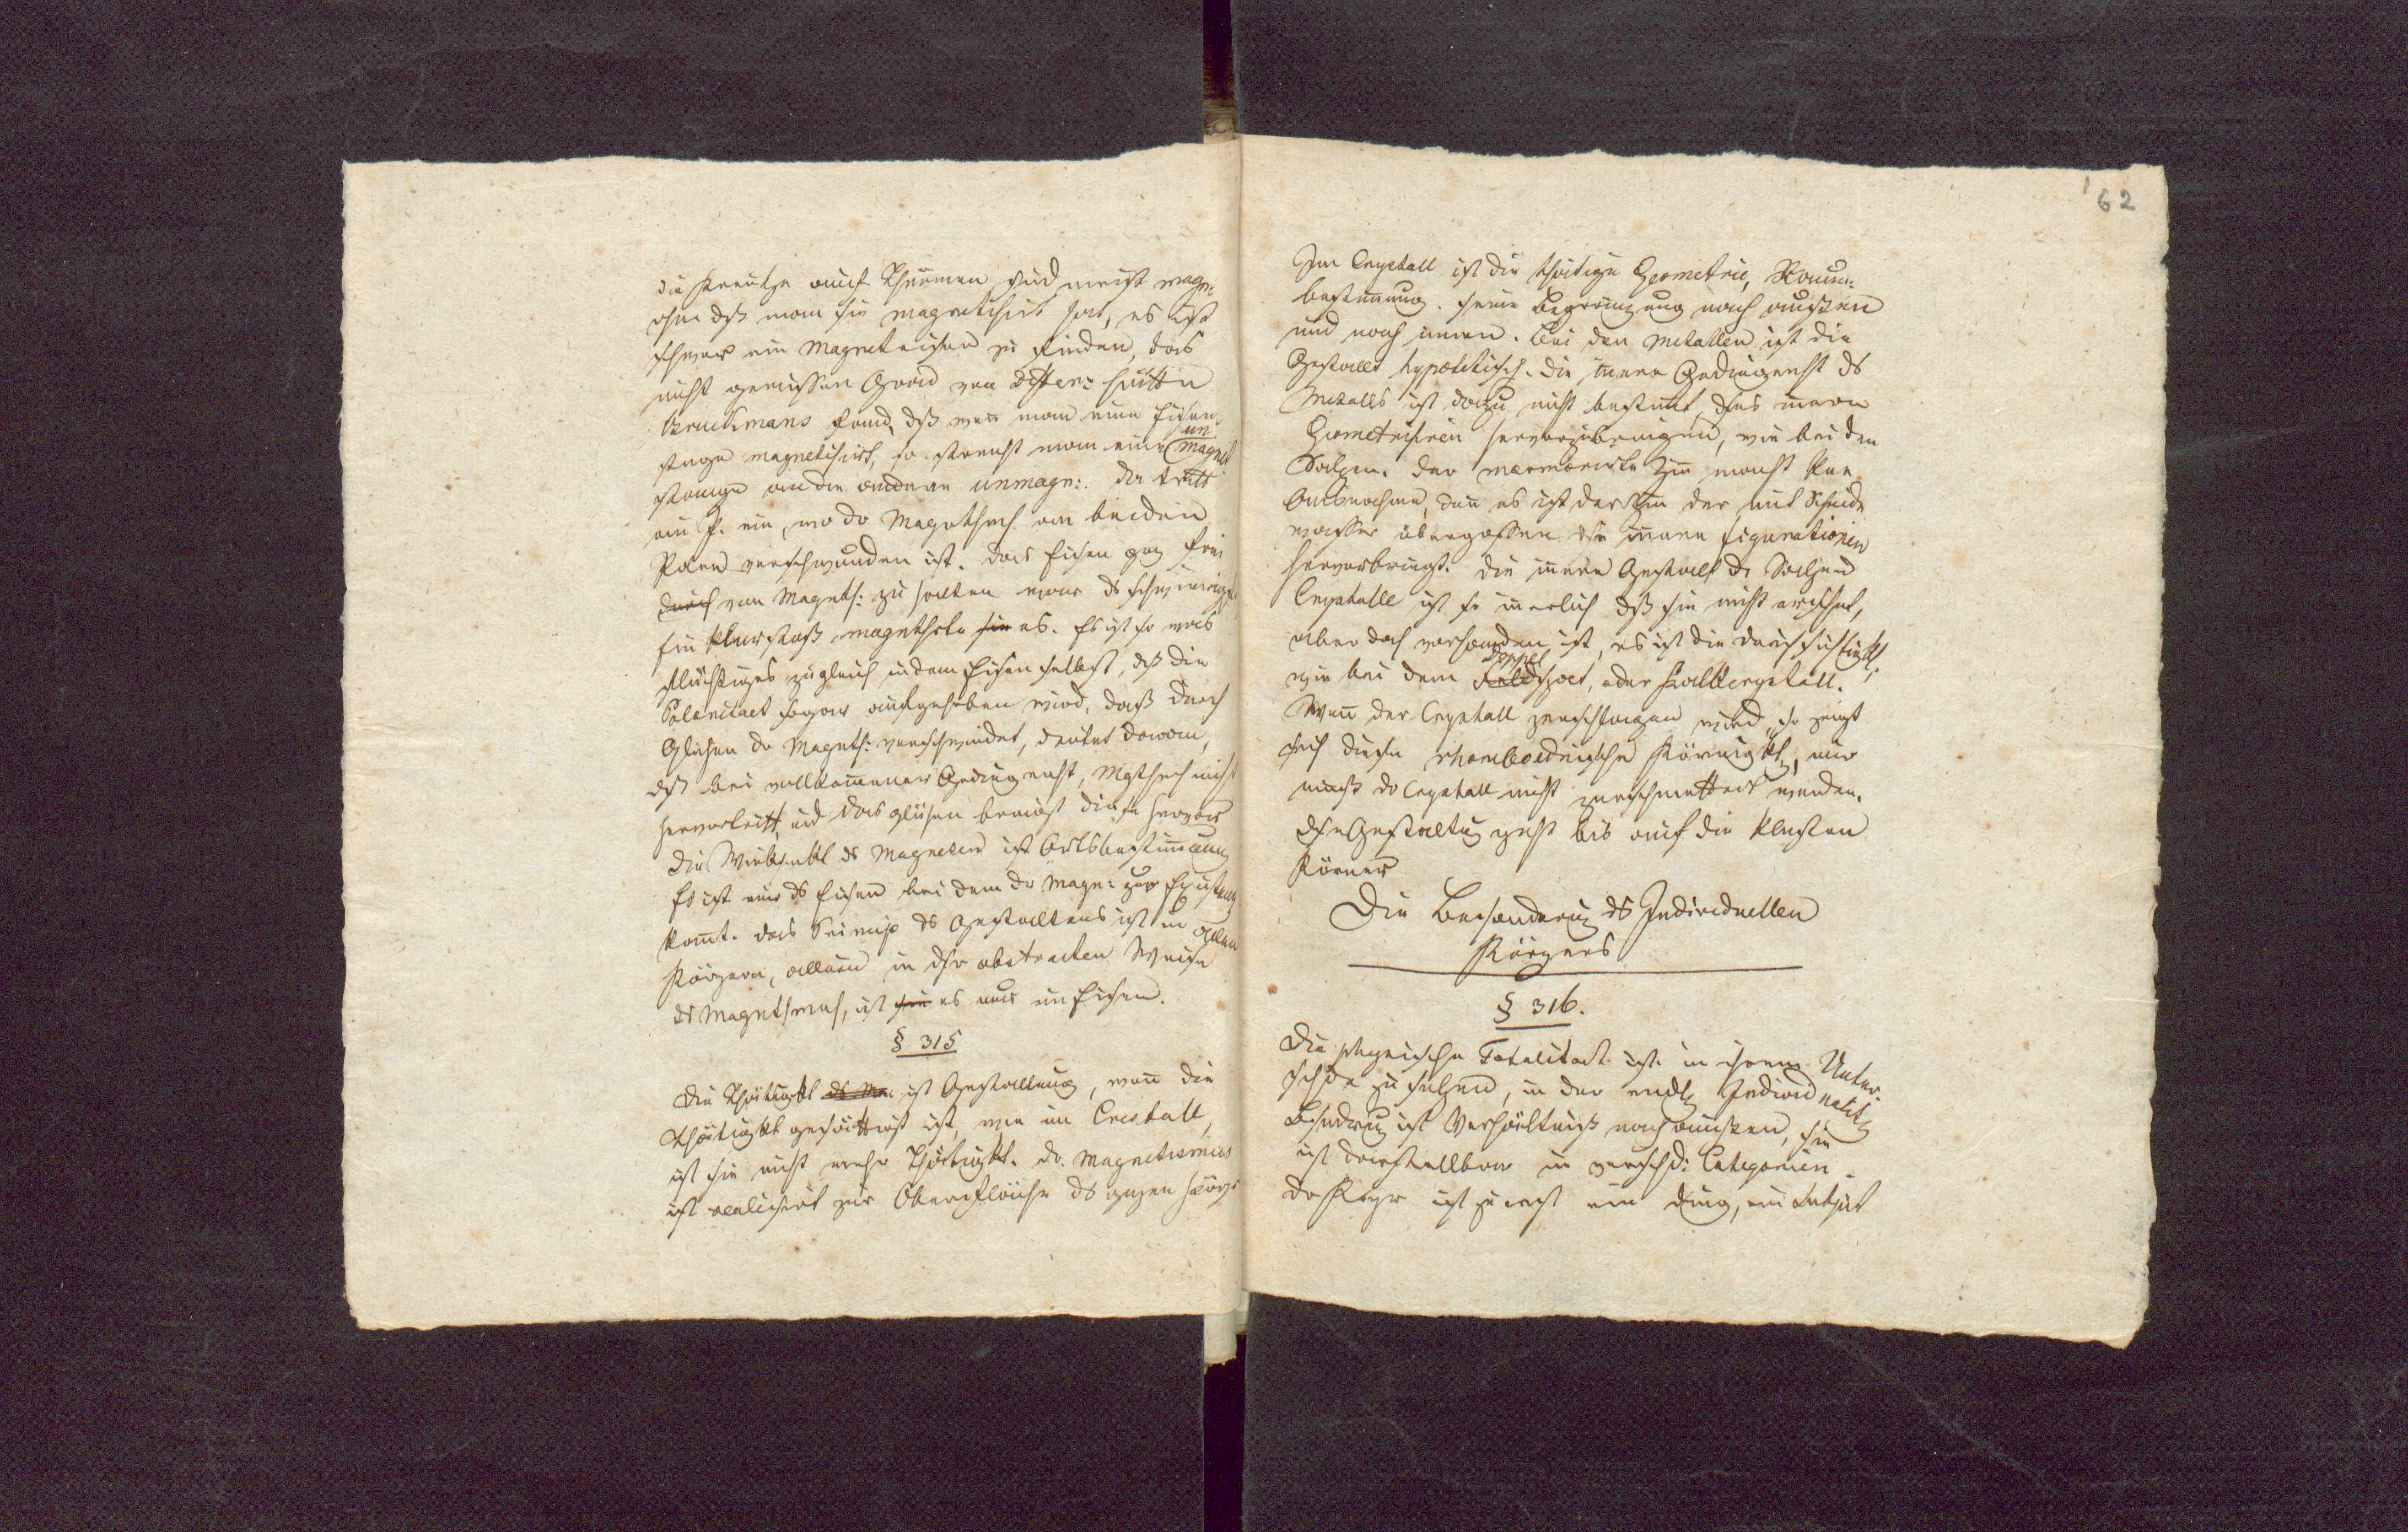 die Kreutze auf Thürmen sind meist magn:
ohne dß man sie magnetisirt hat, es ist
schwer ein Magneteisen zu finden, das
nicht gewissen Grad von Differ: hätte
Bruckmans fand, dß wen man eine Eisen
stange magnetisirt, so streicht man eine un magnet
stange an die andere unmagn:. Da tritt
ein P. ein, wo dr Magnthsm an beiden
verschwunden ist. Das Eisen gz frei
durch von Magnts: zu halten war ds schwierigste
Ein Stoß magnthsrte sie es. Es ist so was
flüchtiges zugleich in dem Eisen selbst, dß die
Polaritaet sogar aufgehoben wird, daß durch
Glühen dr Magnts: verschwindet, deutet daran,
dß bei vollkom̄ener Gediegenht, Mgthsm nicht
hervortritt, und das glühen bringt diese hervor
Die Wirksmkt ds Magneten ist Ortsbestim̄ung
Es ist nur ds Eisen bei dem dr Magn: zur Existenz
kom̄t. Das Princip ds Gestaltens ist in allen
Körpern, allein in dsr abstracten Weise
ds Magnetsmus, ist sie es nur im Eisen.
§ 315
Die Thätigkt ds Ma ist Gestaltung, wen̄ die
Thätigkt gesättigt ist, wie im Cristall,
ist sie nicht mehr Thätigkt. Dr. Magnetismus
ist realisirt zur Oberfläche ds gzen Körp
62
Im Crystall ist die thätige Geometrie, Raum:
bestim̄ung. seine Begränzung nach außen
und nach innen. Bei den Metallen ist die
Gestallt hypothetisch. Die in̄ere Gediegenht ds
Metalls ist dazu nicht bestim̄t, dses in̄ere
Geometrisiren hervorzubringen, wie bei den
Salzen. Der marmorirte Zin̄ macht keine
Ausnahme, den̄ es ist der Zin̄ der mit Scheide
wasser übergossen dse in̄ere Figurationen
hervorbringt. Die in̄ere Gestalt dr Salzen
Crystalle ist so in̄erlich dß sie nicht erscheint,
aber doch vorhanden ist, es ist die Durchsichtigkt,
wie bei dem Feld Doppel spat, oder Kalkcrystall.
Wen̄ der Crystall zerschlagen wird, so zeigt
sich diese rhomboedrische Körnigkt, nur
muß dr Crystall nicht zerschmettert werden.
dse Gestaltug geht bis auf die kleinsten
Körner
Die Besonderug ds Individuellen
Körpers
§ 316.
Die physische Totalitaet ist in ihrem Unter-
schde zu sehen, in der endl. Individualität
Besndrug ist Verhältniß nach außen, sie
ist darstellbar in verschd: Categorien.
Dr Körpr ist zuerst ein Ding, ein Subjct